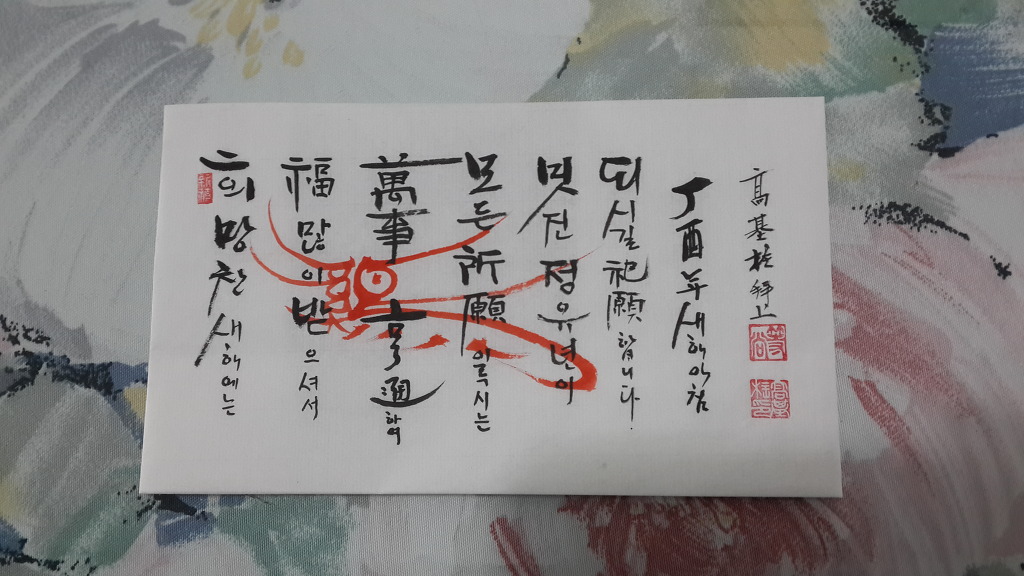 희망찬 새해에는
福 많이 받으셔서
萬事亨通하여
모든 所願 이룩시는
멋진 정유년이
되시길 祈願합니다.
丁酉年 새해아침
高基 拜上